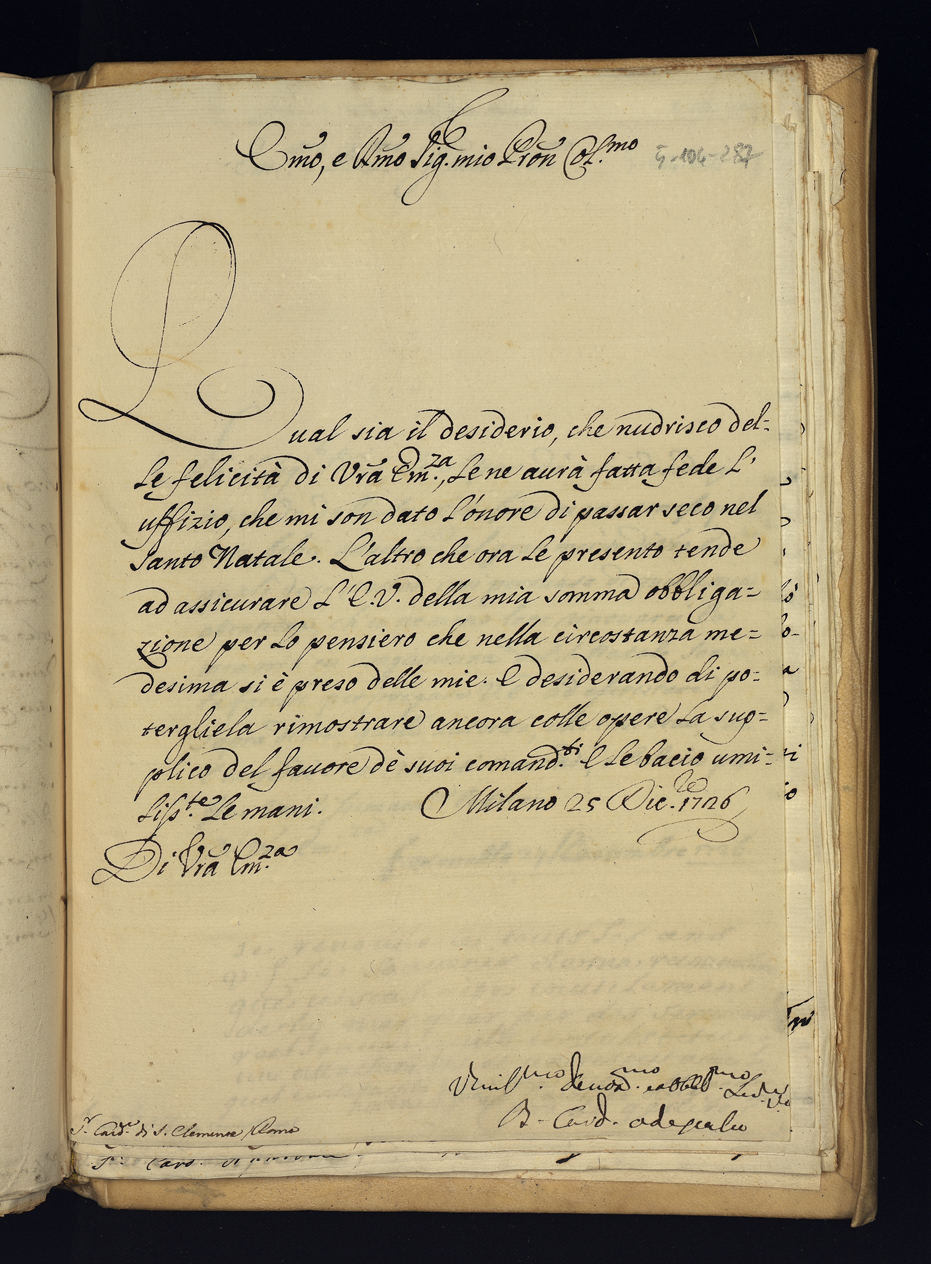 Em̃o, e Rm̃o Sig. mio Pron̄ Col.mo
5-104-287
Qual sia il desiderio, che nudrisco del-
le felicità di Vrã Em.za, le ne aurà fatta fede l'
uffizio, che mi son dato l'onore di passar seco nel
Santo Natale. L'altro che ora le presento tende
ad assicurare l'E.V. della mia somma obbliga-
zione per lo pensiero che nella circostanza me-
desima si è preso delle mie. E desiderando di po-
tergliela rimostrare ancora colle opere la sup-
plico del favore dè suoi comand.ti E le bacio umi-
liss.te le mani. Milano 25 Dic.re 1726
Di Vrã Em.za
Umil.mo deuot.mo et obbl.mo
B. Card. odescalco
Card.e di S. Clemente Roma